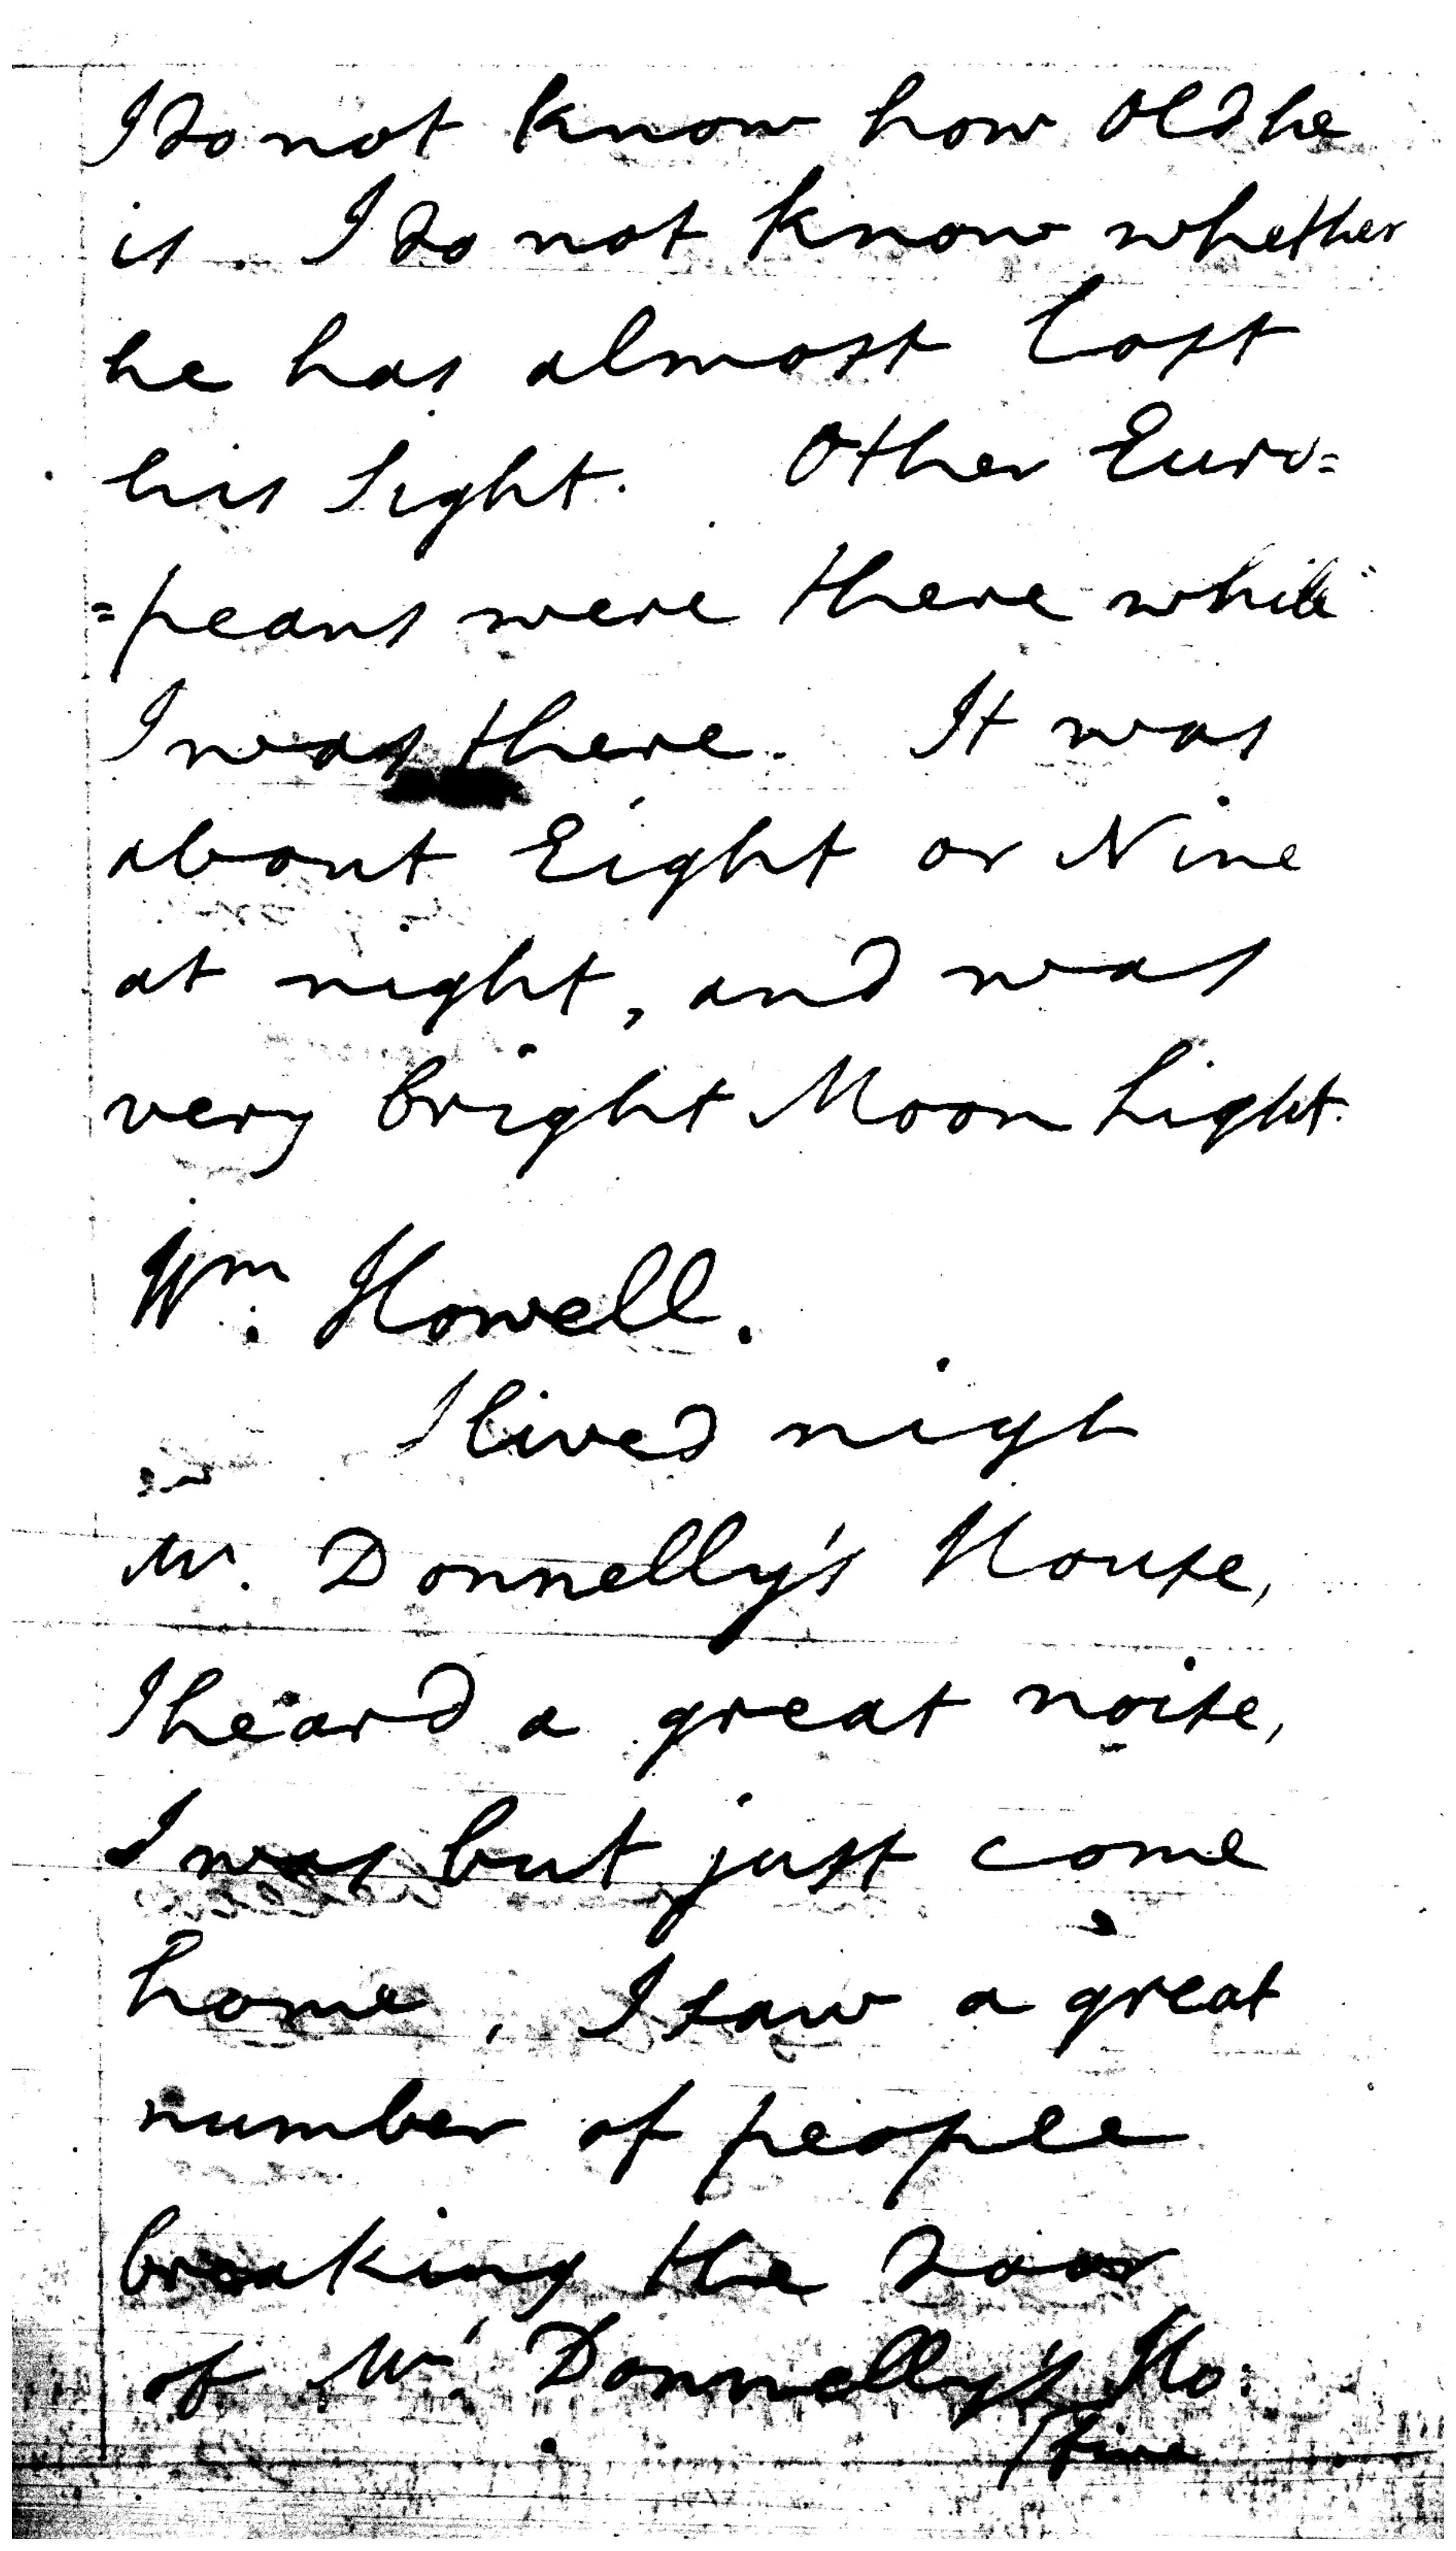 I do not know how old he
is. I do not know whether
he has almost lost
his Sight. Other Euro=
=peans were there while
I was there. It was
about Eight or Nine
at night, and was
very bright Moon Light.
Wm. Howell.
I lived nigh
Mr. Donnelly's House,
I heard a great noise,
I was but just come
home, I saw a great
number of people
breaking the door
of Mr. Donnelly's Ho: